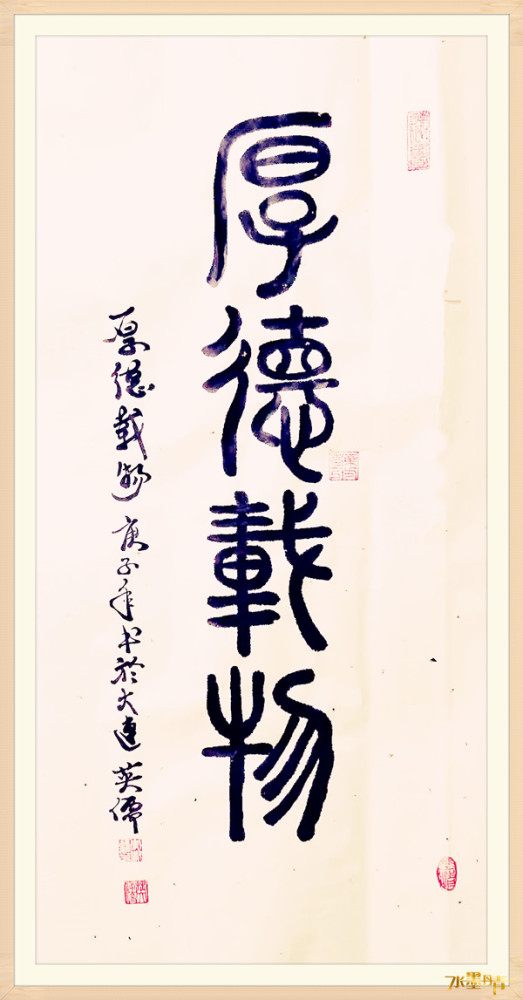 厚德載物
厚德載物 庚子年书於大連 英儒
水墨丹青